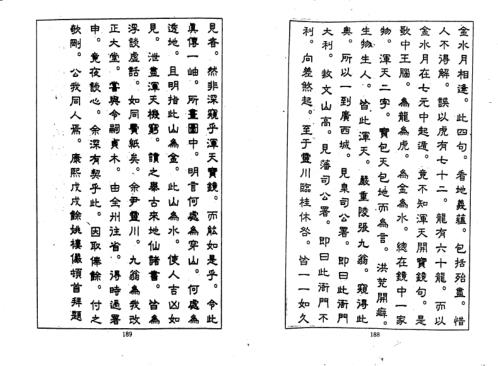 金水月相逢。此四句。看地義蘊。包括殆盡。惜
人不得解。誤以虎有七十二。龍有六十龍。而以
金水月在七元中起遁。竟不知渾天開寶鏡句。是
歌中王腦。為龍為虎。為金為水。總在鏡中一家
物。渾天二字。實包天包地而為言。洪荒開辟。
生物生人。皆此渾天。嚴重陵張九翁。窺得此
奧。所以一到廣西城。見臬司公署。即曰此衙門
大利。救文山高。見藩司公署。即曰此衙門不
利。向差煞起。至于靈川臨桂休咎。皆一一如久
188
見者。然非深窺乎渾天寶鏡。而能如是乎。今此
真傳一岫。所畫圖中。明言何處為穿山。何處為
透地。且明指此山為金。此山為水。使人吉凶如
見。泄盡渾天機竅。讀之舉古來地仙諸書。皆為
浮談虛話。如同廢紙矣。余尹靈川。九翁為我改
正大堂。嘗與令嗣貢木。由全州往省。得時過署
中。竟夜談心。余深有契乎此。因取俸餘。付之
歌剛。公我同人焉。康熙戊戌餘姚樓儼頓首拜題
189